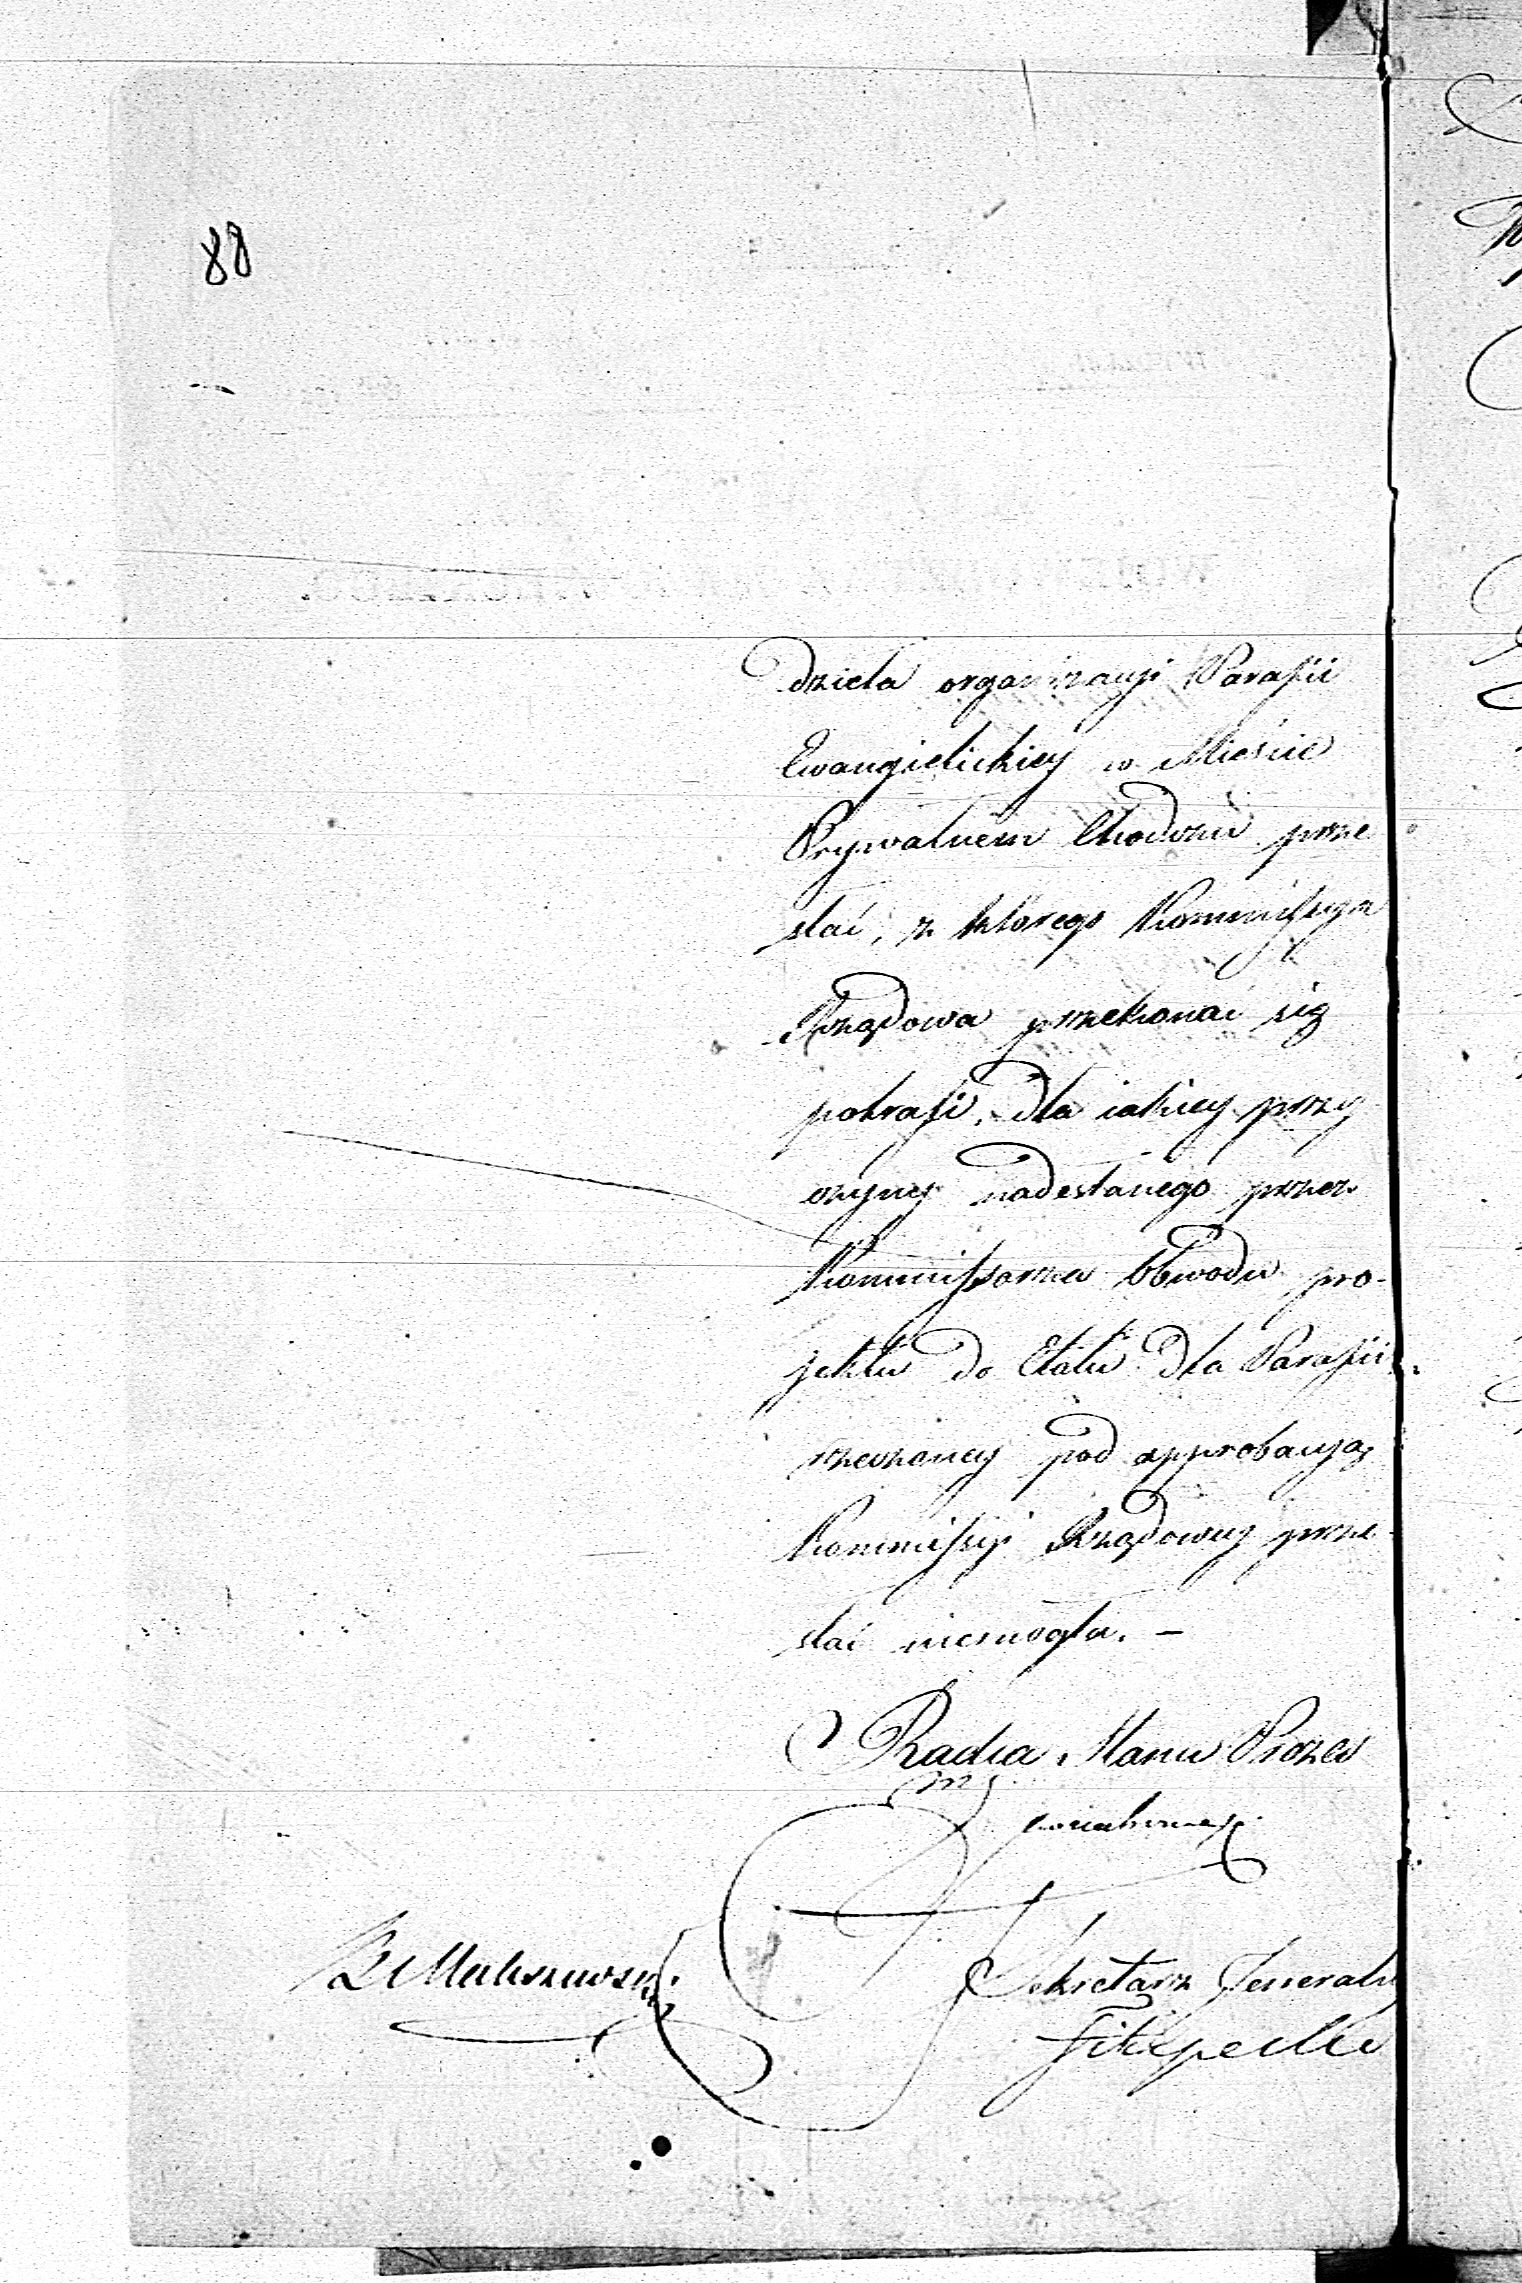 88
dzieła organizacyi Parafii
Ewangielickiey w Mieście
Prywatném Chodczu prze
słać, z którego Kommissya
Rządowa przekonać się
potrafi, dla iakiey przy
czyny nadesłanego przez
Kommissarza Obwodu pro-
jektu do Etatu dla Parafii
rzeczoney pod approbacyą
Kommissyi Rządowey prze-
słać niemogła. –
Radca Stanu Prezes
Sekretarz Jeneralny